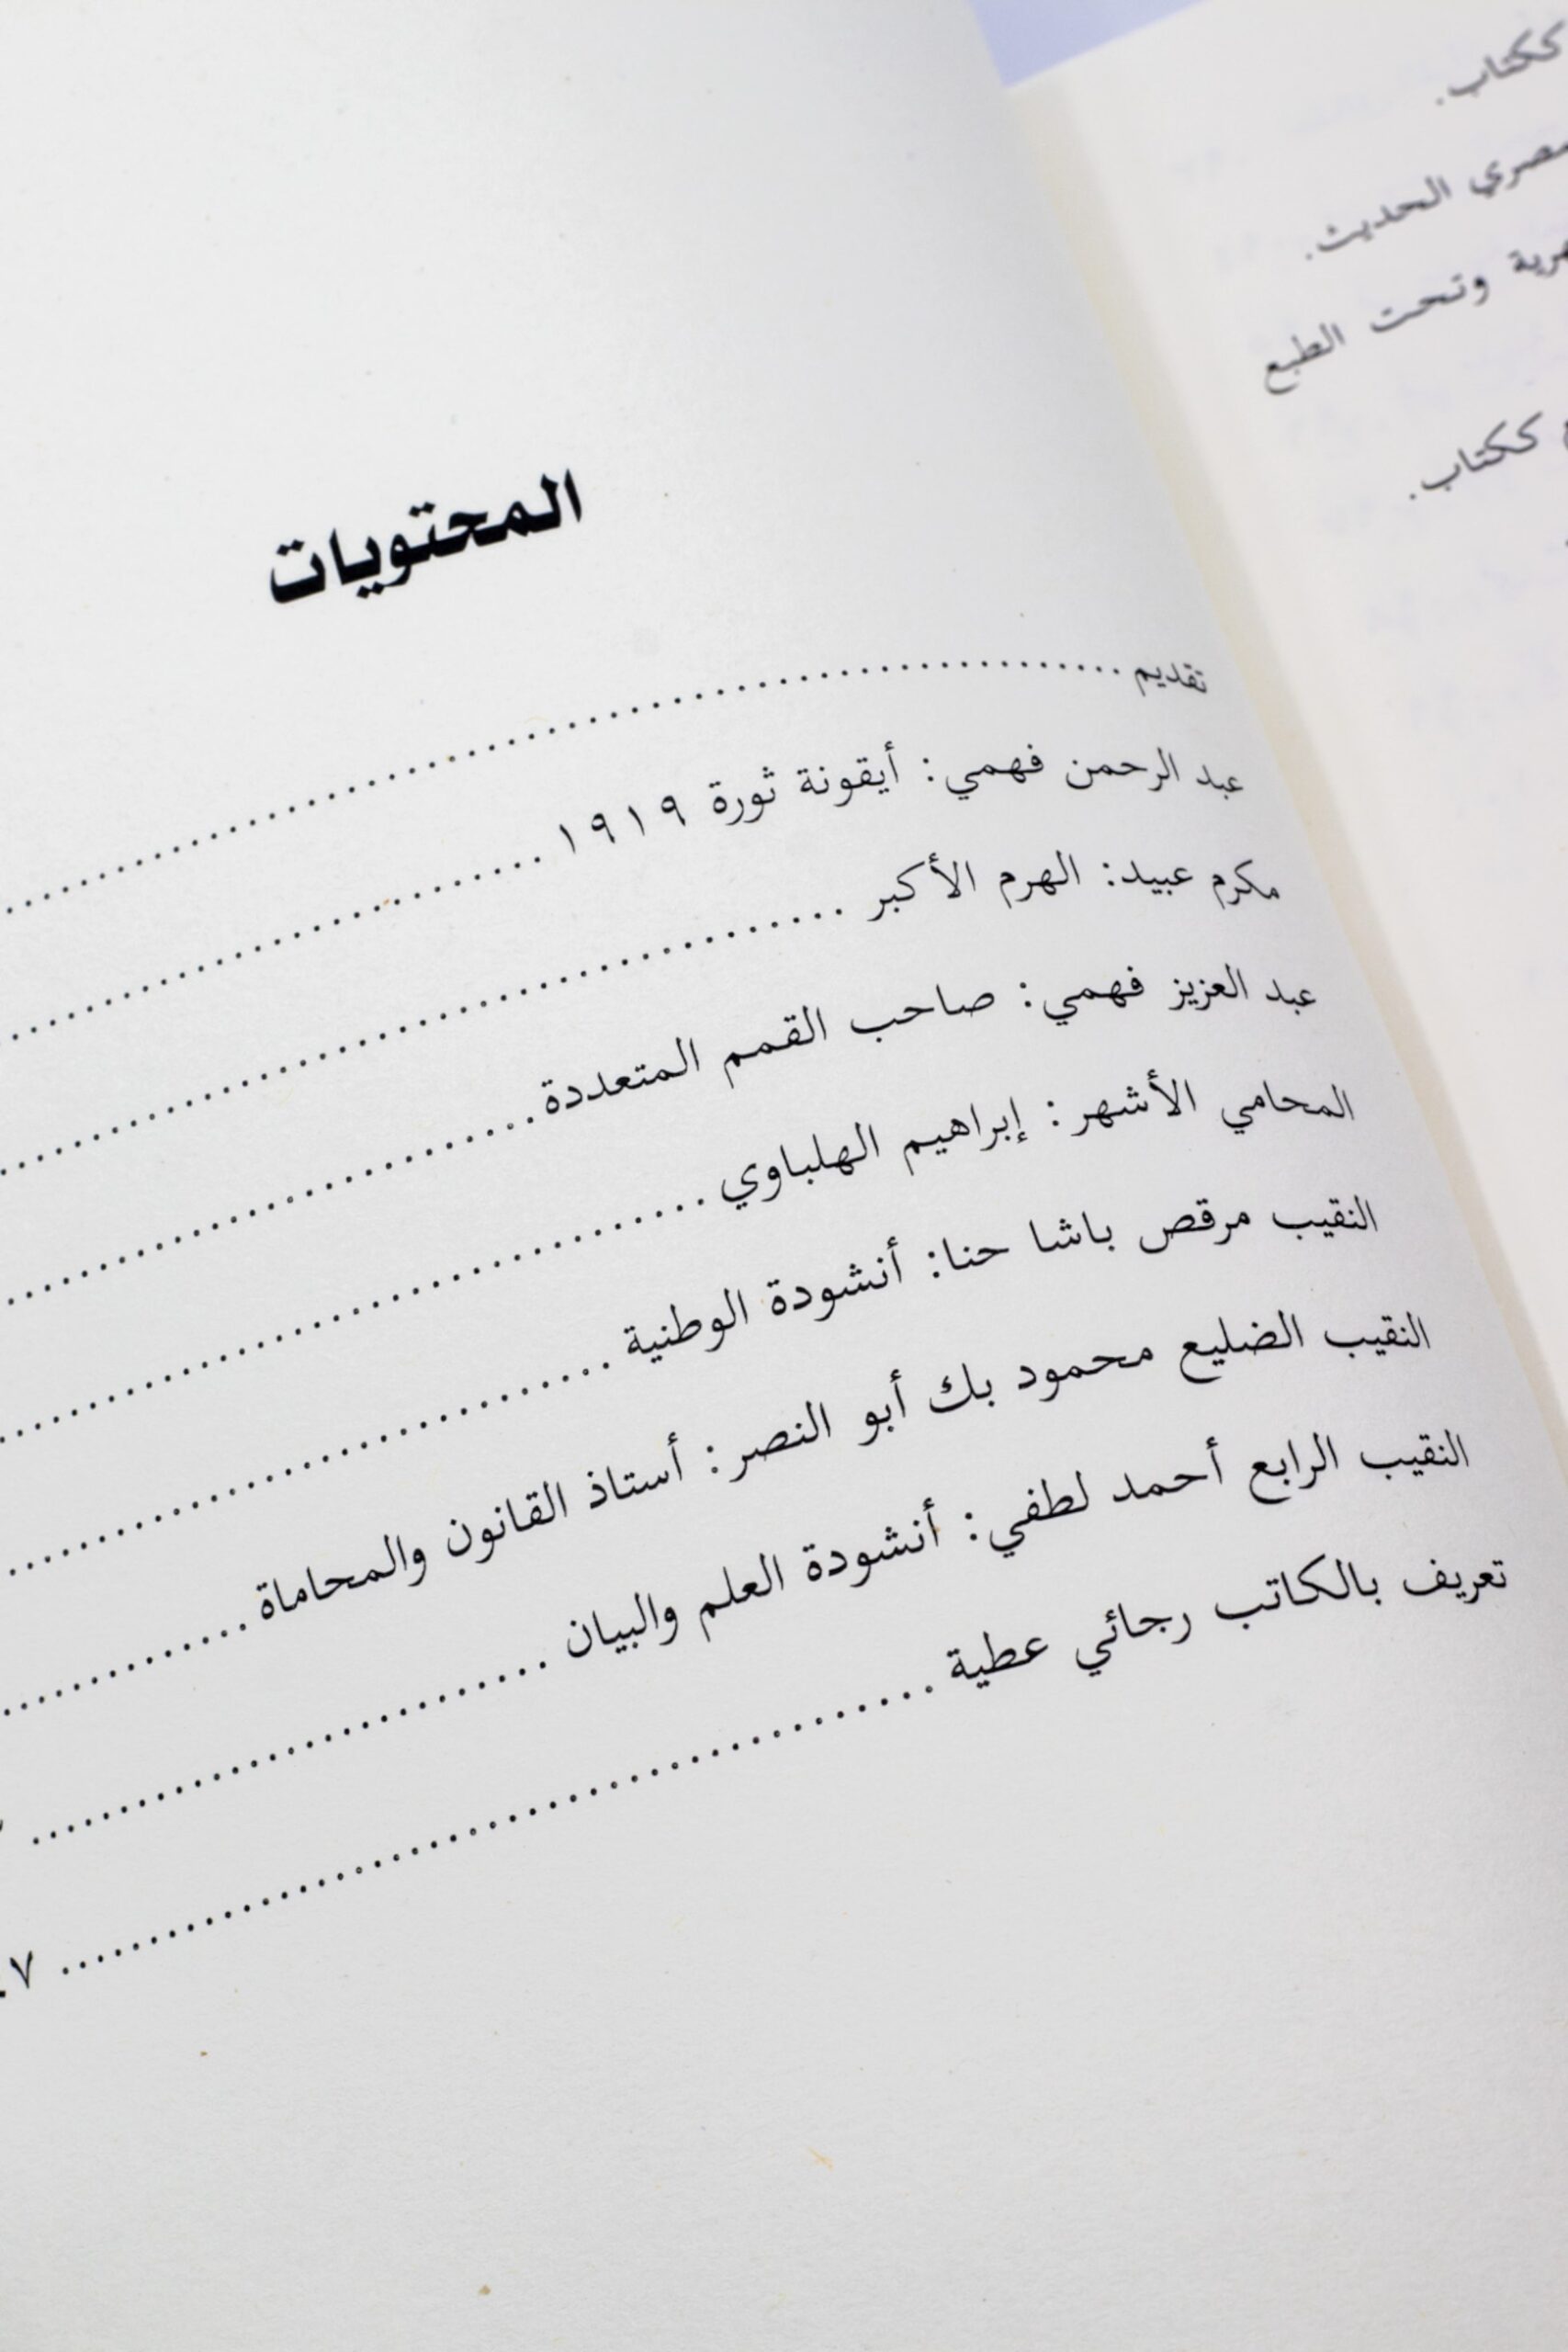 المحتويات
تقديم
عبد الرحمن فهمي: أيقونة ثورة ١٩١٩
مكرم عبيد: الهرم الأكبر
عبد العزيز فهمي: صاحب القمم المتعددة
المحامي الأشهر: إبراهيم الهلباوي
النقيب مرقص باشا حنا: أنشودة الوطنية
النقيب الضليع محمود بك أبو النصر: أستاذ القانون والمحاماة
النقيب الرابع أحمد لطفي: أنشودة العلم والبيان
تعريف بالكاتب رجائي عطية
ككتاب.
الحديث.
وتحت الطبع
ككتاب.